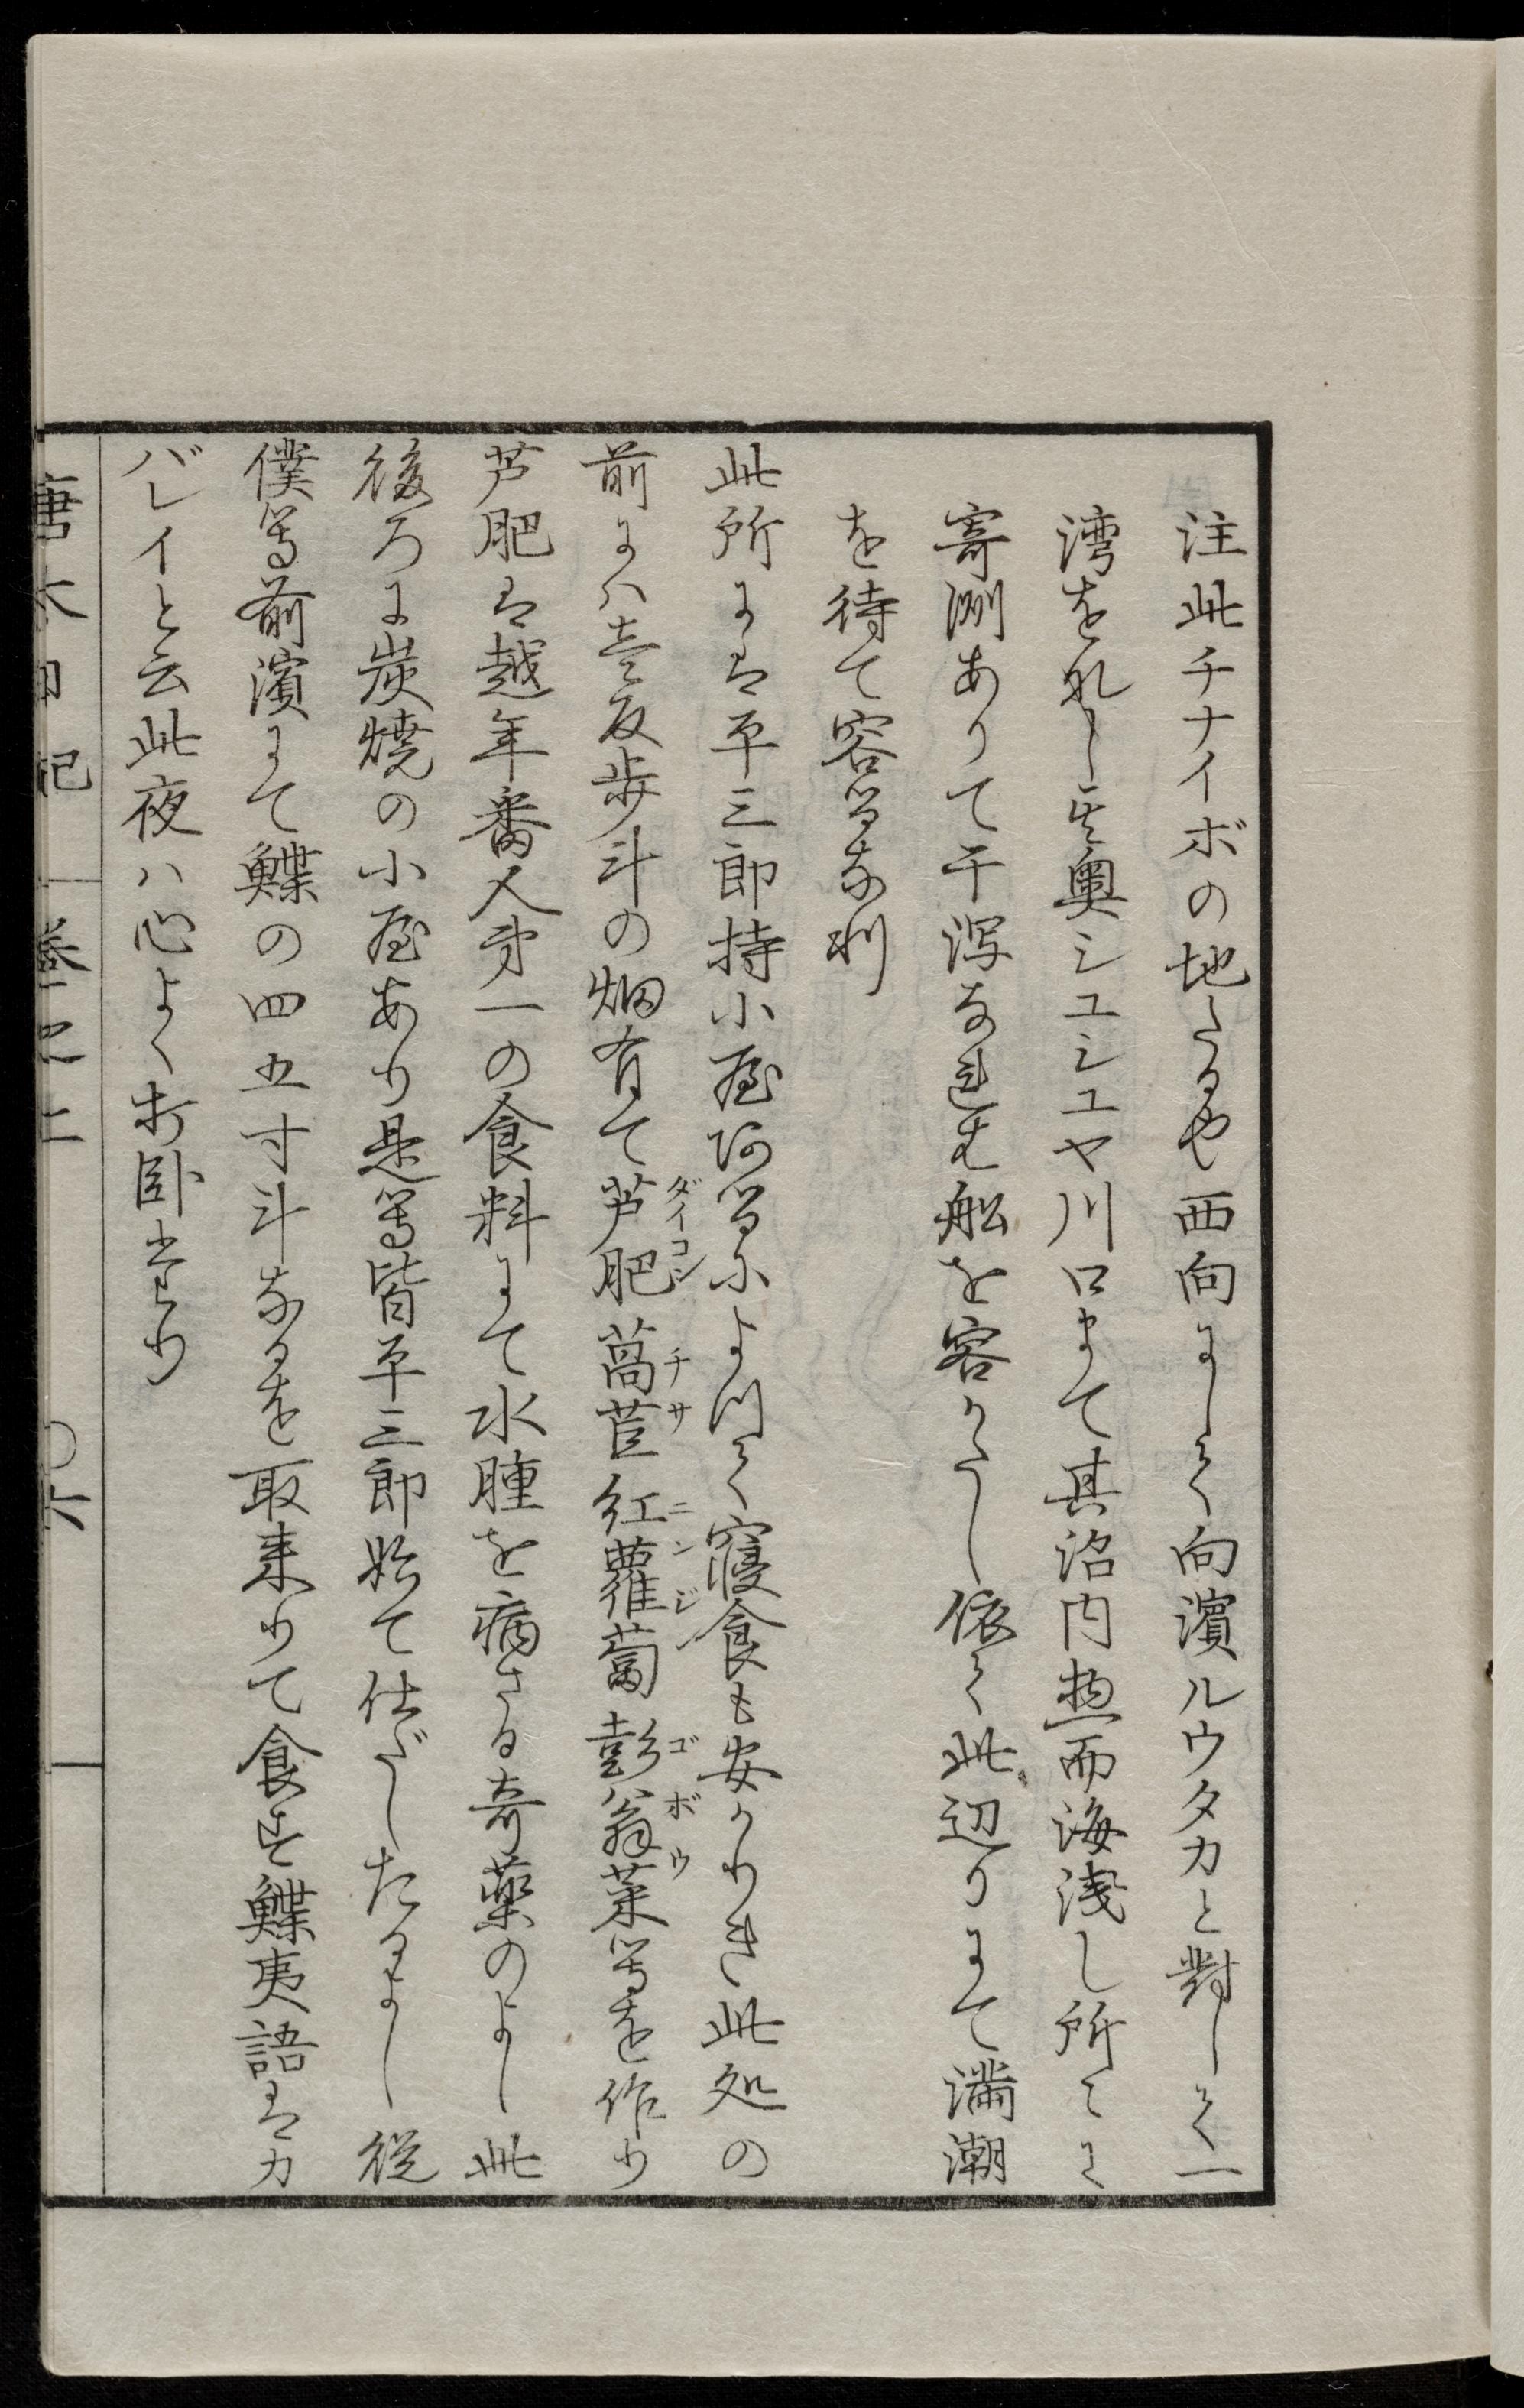 注此チナイボの地たるや西向にして向濱ルウタカと對して一
湾をなし其奥シユシユヤ川口まて其沼内惣而海浅し所々に
寄洲ありて干潟なれは船を容かたし依て此辺りにて満潮
を待て容るなり
此所には平三郎持小屋ある によつて寢食も安かりき此処の
前には壱反歩斗の畑有て芦肥萵苣紅蘿蔔彭翁菜等を作り
ダイコン チサ ニンジン ゴボウ
芦肥は越年番人第一の食料にて水腫を病さる奇薬のよし此
後ろに炭焼の小屋あり是等皆平三郎始て仕だしたるよし従
僕等前濱にて鰈の四五寸斗なるを取来りて食す鰈夷語はカ
バレイと云此夜ハ心よく打臥たり
唐太日記 巻之上 〇六